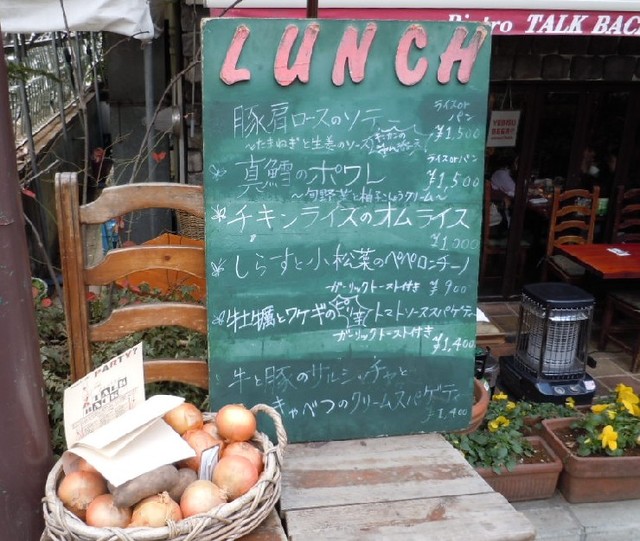 Bistro TALK BACK
LUNCH
豚肩ロースのソテー
ライスor
パン
¥1,500
~たまねぎと生姜のソース~
真鱈のポワレ
ライスorパン
¥1,500
~旬野菜と柚子こしょうクリーム~
チキンライスのオムライス
¥1,000
しらすと小松菜のペペロンチーノ
ガーリックトースト付き ¥900
牡蠣とワケギの トマトソースパゲティ
ガーリックトースト付き ¥1,400
牛と豚のサルシッチャと
キャベツのクリームスパゲティ ¥1,400
PARTY?
TALK
BACK
YEBISU
BEER